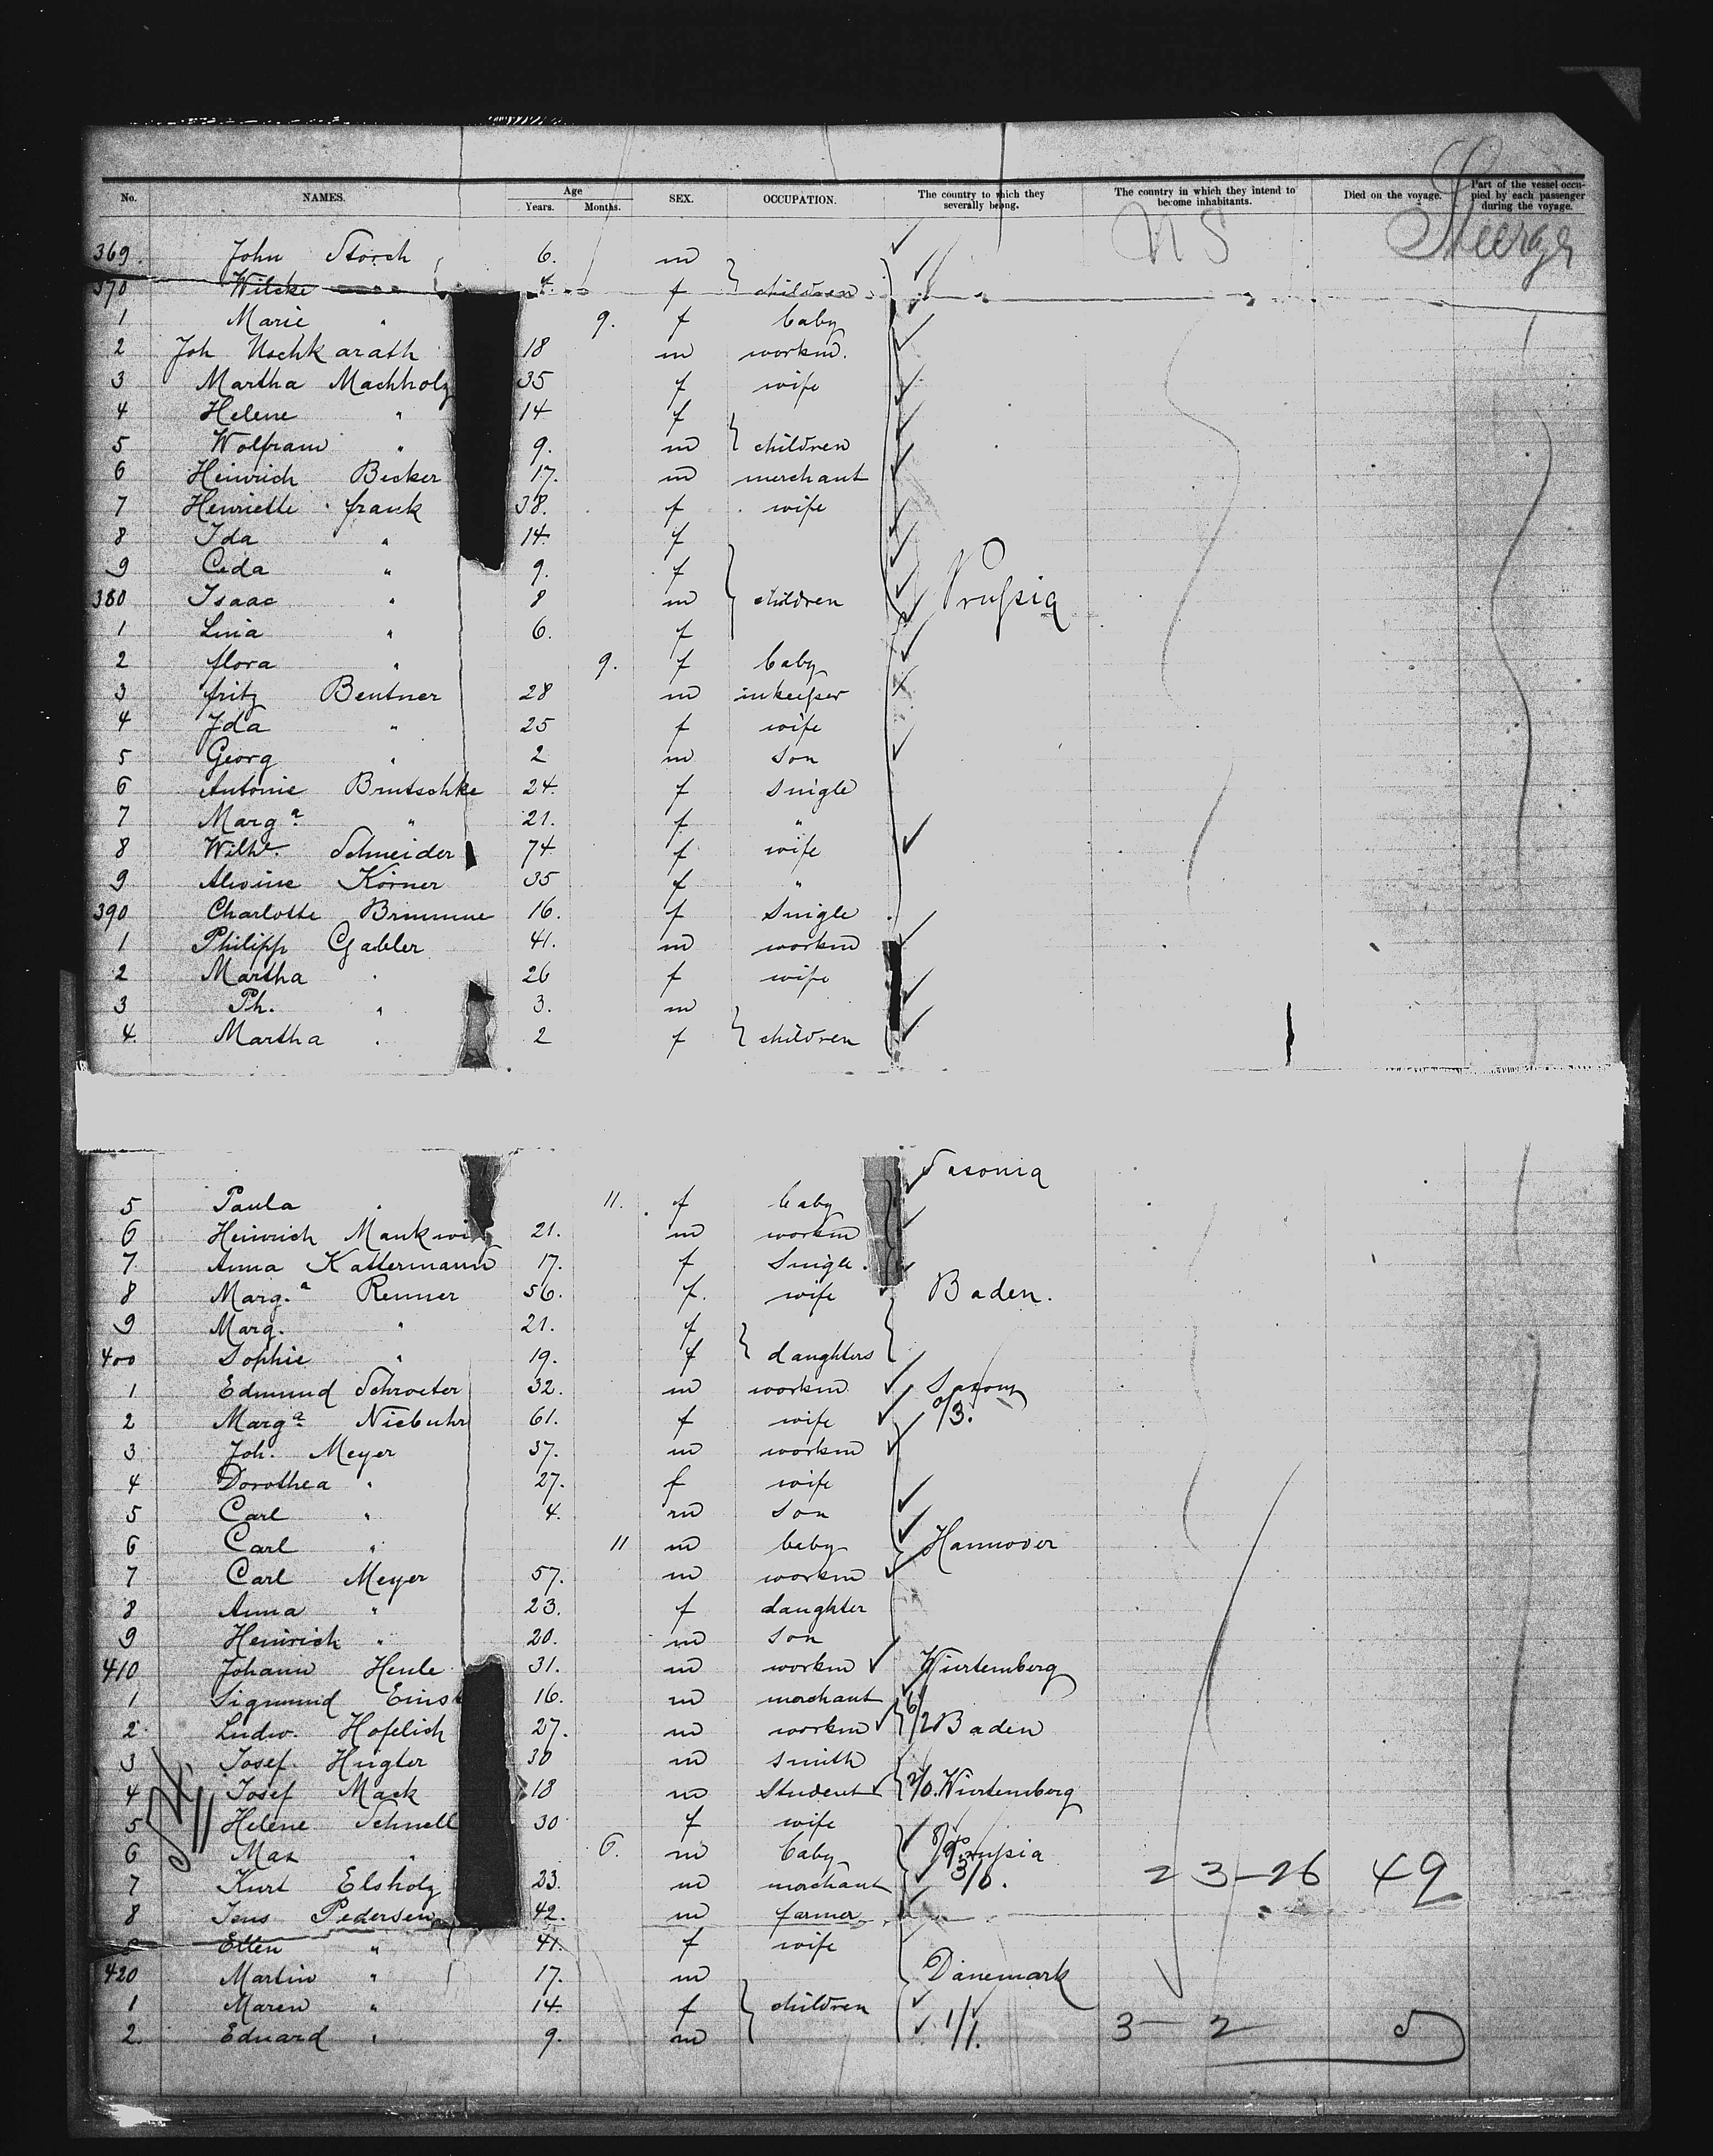 No. NAMES. Age Years. Months. SEX. OCCUPATION. The country to which they severally belong. The country in which they intend to become inhabitants. Died on the voyage. Part of the vessel occupied by each passenger during the voyage.
US Steerage
369. John Storch 6. m
370 Wilcke " 4. f } children
1 Marie " 9. f baby
2 Joh 18 m workm.
3 Martha Machholz 35 f wife
4 Helene " 14 f
5 Wolfram " 9. m } children
6 Heinrich Becker 17. m merchant
7 Henriette frank 38. f wife
8 Ida " 14. f
9 Ceda " 9. f
380 Isaac " 8 m } children Prussia
1 Lina " 6. f
2 flora " 9. f baby
3 fritz Bentner 28 m
4 Ida " 25 f wife
5 Georg " 2 m son
6 Antonie Brutschke 24. f single
7 Marga " 21. f "
8 Wilhe. Schneider 74. f wife
9 Alwine Körner 35 f "
390 Charlotte Brumme 16. f Single
1 Philipp Gabler 41. m workm
2 Martha " 26 f wife
3 Ph. " 3. m
4. Martha " 2 f } children
5 Paula " 11. f baby
6 Heinrich 21. m workm
7. Anna Kattermann 17. f Single.
8 Marg.a Renner 56. f. wife Baden.
9 Marg. " 21. f
400 Sophie " 19. f } daughters
1 Edmund Schroeter 32. m workm Saxony
2 Marga Niebuhr 61. f wife
3 Joh. Meyer 37. m workm
4 Dorothea " 27. f wife
5 Carl " 4. m son
6 Carl " 11 m baby Hannover
7 Carl Meyer 57. m workm
8 Anna " 23. f daughter
9 Heinrich " 20. m son
410 Johann Henle 31. m workm Würtemberg
1 Sigmund 16. m merchant
2 Ludw. Hofelich 27. m workm Baden
3 Josef. Hugler 30 m smith
4 Josef Mack 18 m Student Würtemberg
5 Helene Schnell 30 f wife
6 Max " 6. m baby Prussia
7 Kurt Elsholz 23. m merchant 23-26 49
8 Jens Pedersen 42. m farmer
Ellen " 41. f wife
420 Martin " 17. m Dänemark
1 Maren " 14. f } children
2. Eduard " 9. m 1/1. 3- 2 5